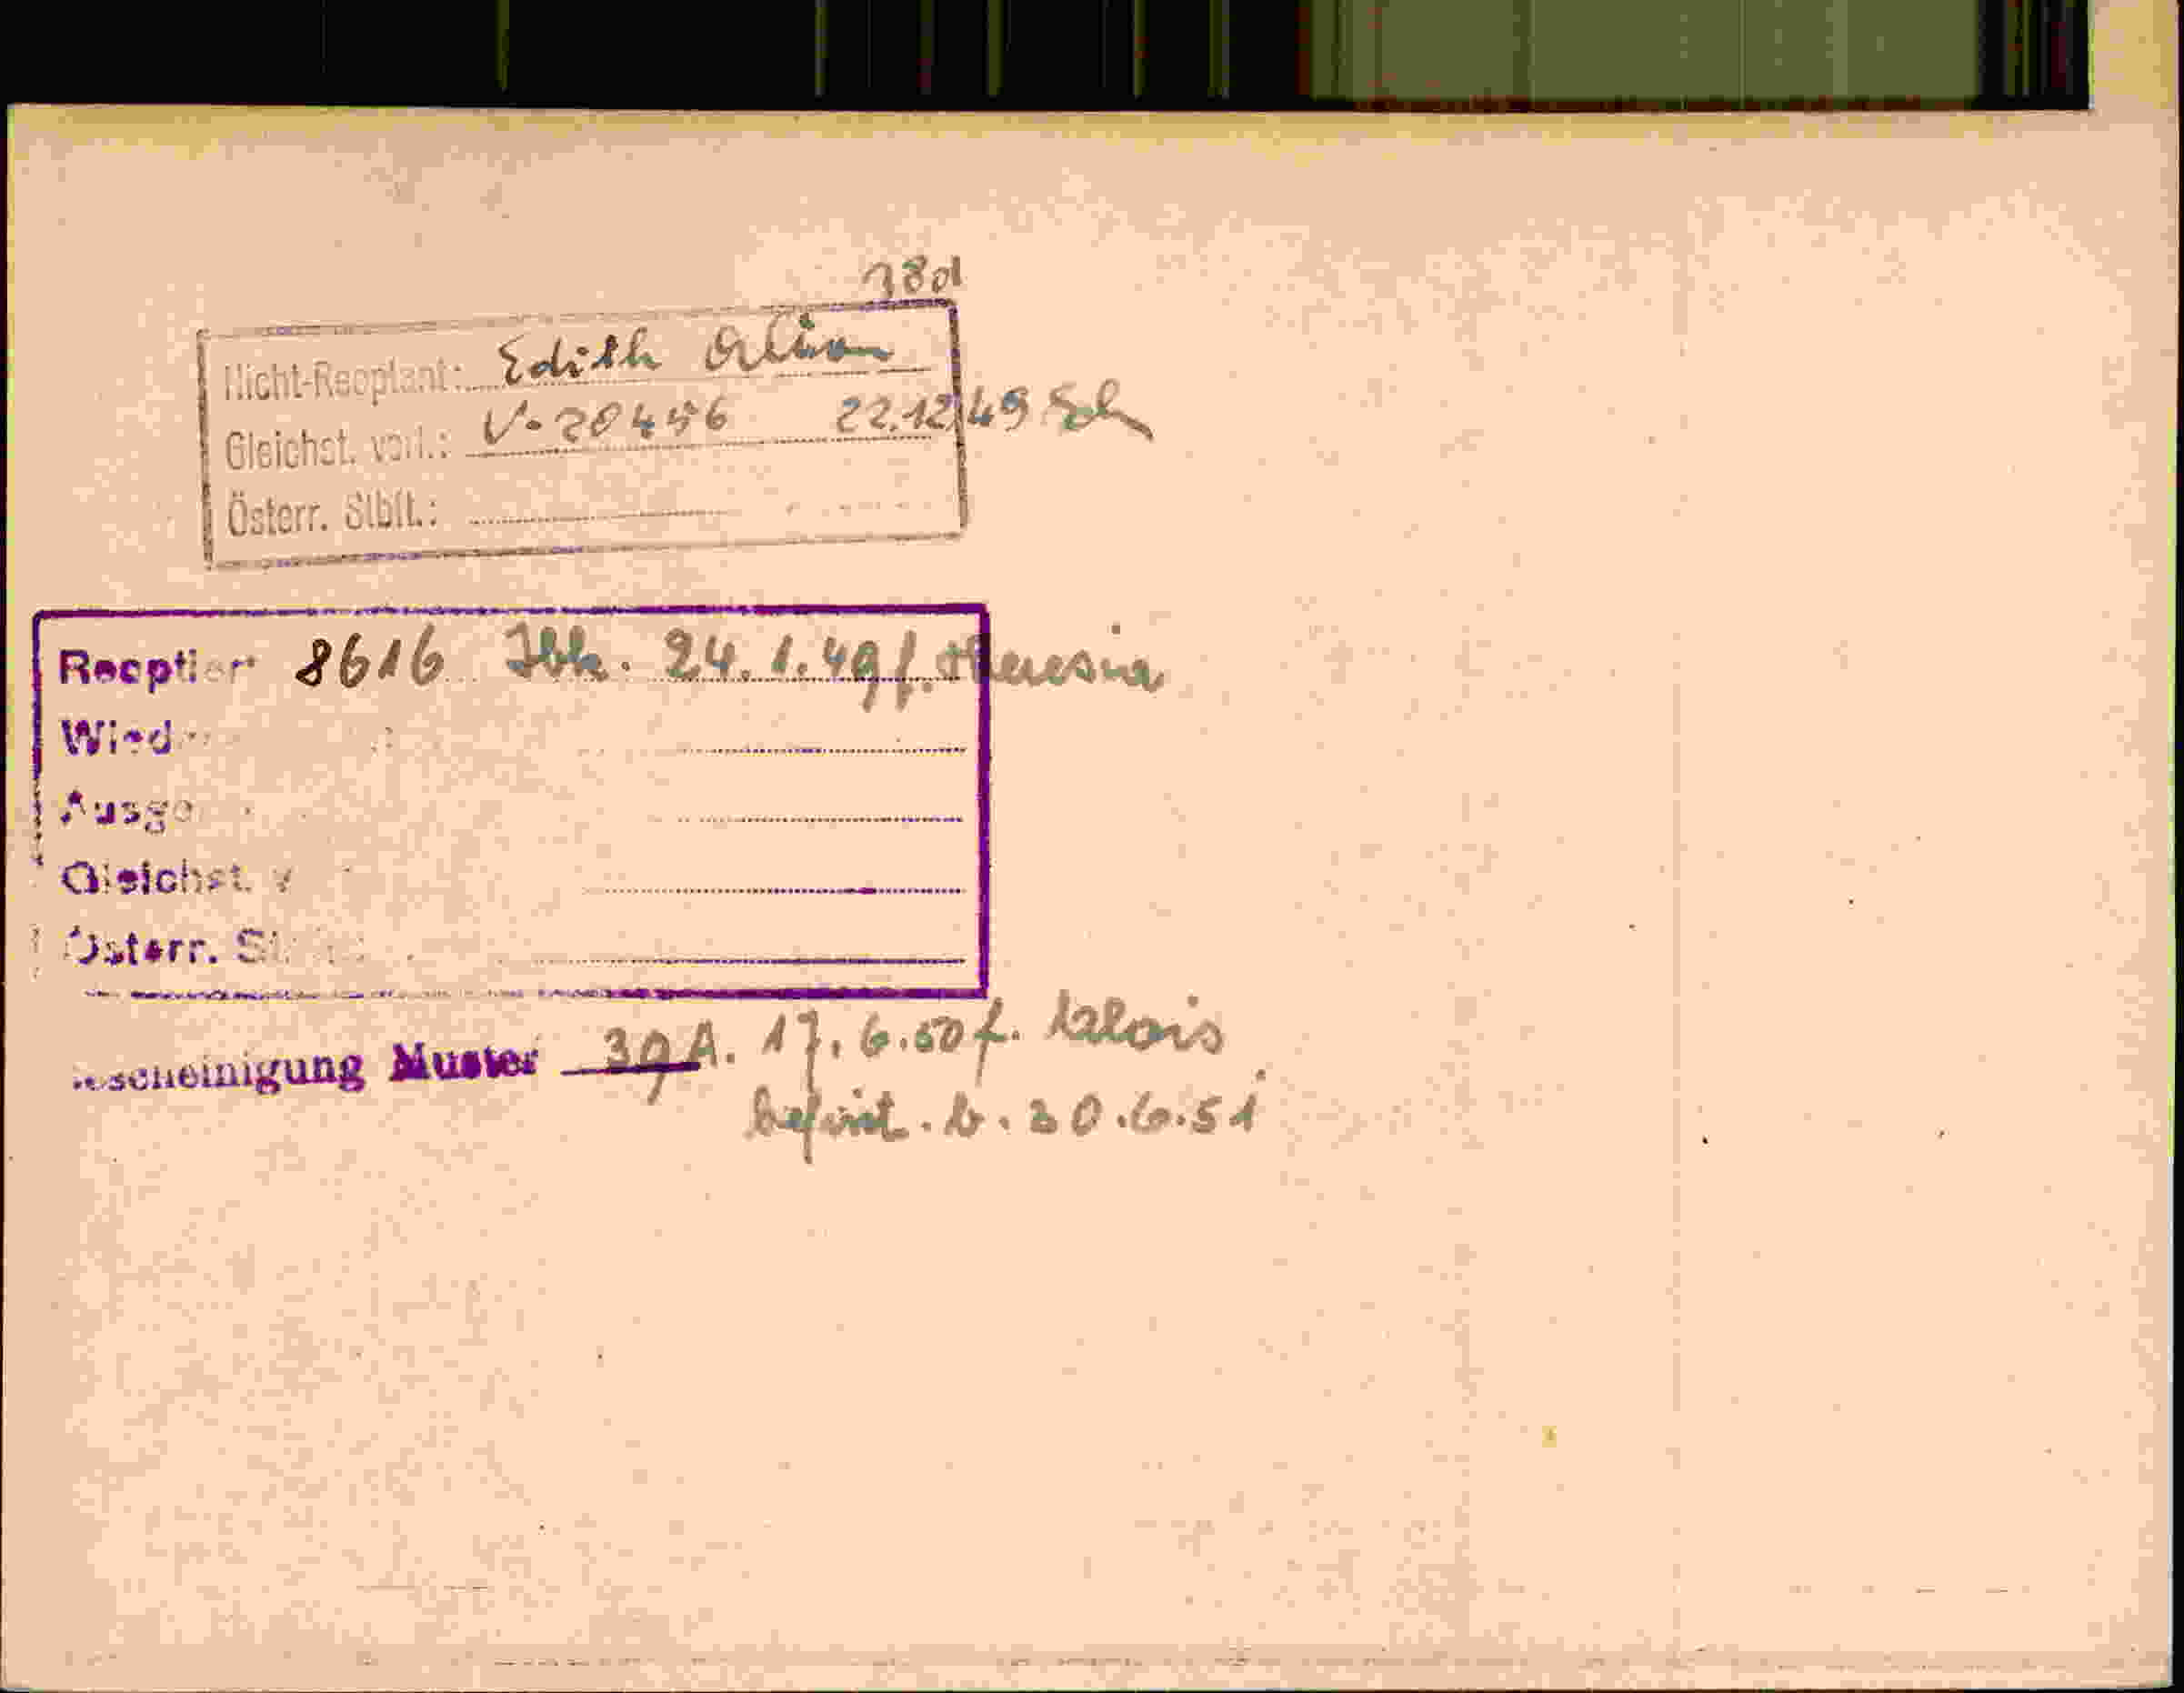 38d
Nicht-Reoptant: Edith
Gleichst. vorl.: V-20456 22.12.49 Sch
Österr. Stbft.:
Reoptiert 8616 Ibk. 24.1.49 f. Theresia
Wied
Ausge
Gleichst. v
Österr. St
escheinigung Muster 39 A. 17.6.50 f. Alois
befrist. b. 30.6.51